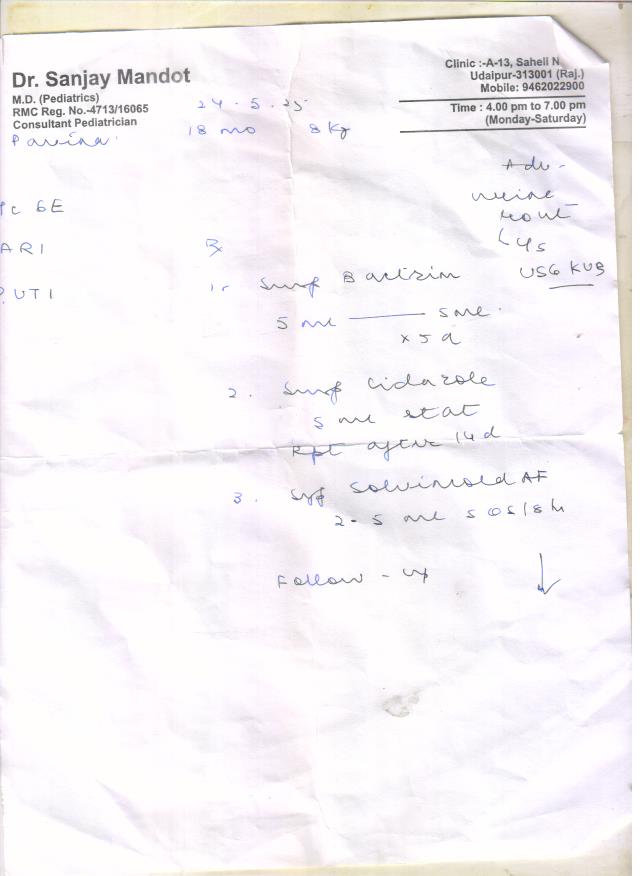 Dr. Sanjay Mandot
M.D. (Pediatrics)
RMC Reg. No.-4713/16065
Consultant Pediatrician
Clinic :-A-13, Saheli N
Udaipur-313001 (Raj.)
Mobile: 9462022900
Time : 4.00 pm to 7.00 pm
(Monday-Saturday)
24.5.25
18 mo 8 kg
Adv-
urine
rout
c/s
USG KUB
GE
ARI
? UTI
Rx
1. Bactrim
5 ml 5 ml.
x 5 d
2. Cidazole
5 ml stat
Rpt after 14 d
3. Syp Solvincold AF
2-5 ml SOS/8h
Follow-up